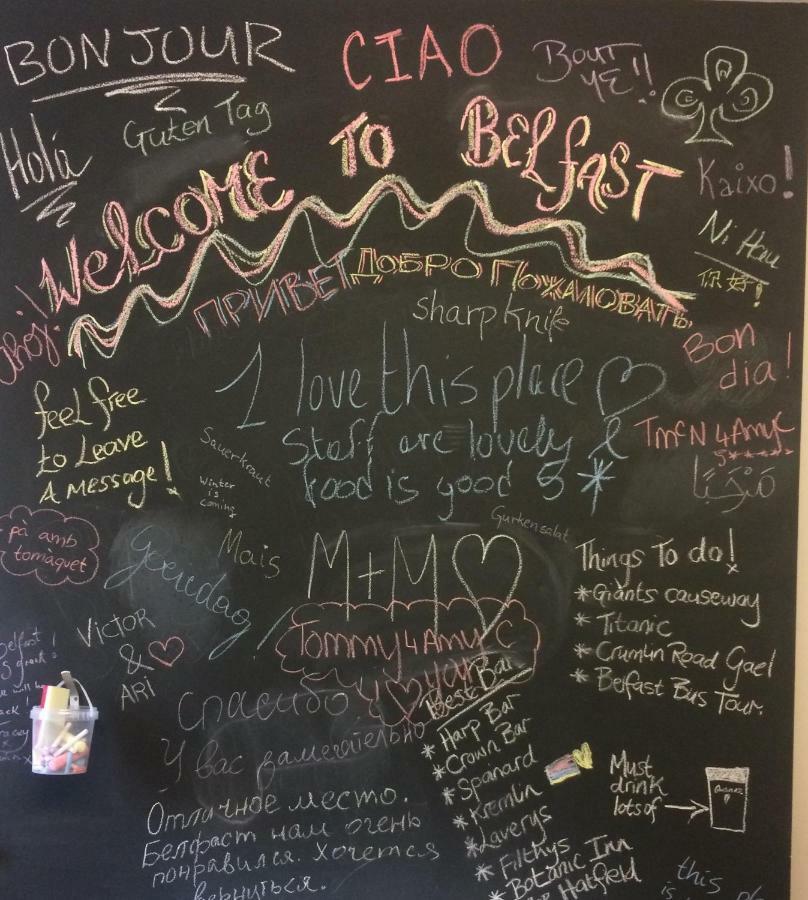 BONJOUR
CIAO
BOUT
YE!!
Hola
Guten Tag
WELCOME TO BELFAST
Kaixo!
Ni Hau
你好!
ПРИВЕТ ДОБРО ПОЖАЛОВАТЬ
sharp knife
Bon
dia!
I love this place
Staff are lovely &
food is good 5 *
feel free
to Leave
A message!
Sauerkraut
Winter
is
coming
TMcN 4 Amy C
5*****
مَرْحَبًا
Gurkensalat
pà amb
tomàquet
goeiedag!
Mais
M+M
Things To do!
* Giants causeway
* Titanic
* Crumlin Road Gael
* Belfast Bus Tour.
VICTOR
&
ARi
Tommy 4 Amy C
Спасибо
У вас замечательно
Отличное место.
Белфаст нам очень
понравился. Хочется
вернуться.
Best Bar
* Harp Bar
* Crown Bar
* Spanard
* Kremlin
* Laverys
* Filthys
* Botanic Inn
Hatfield
Must
drink
lots of
this
is